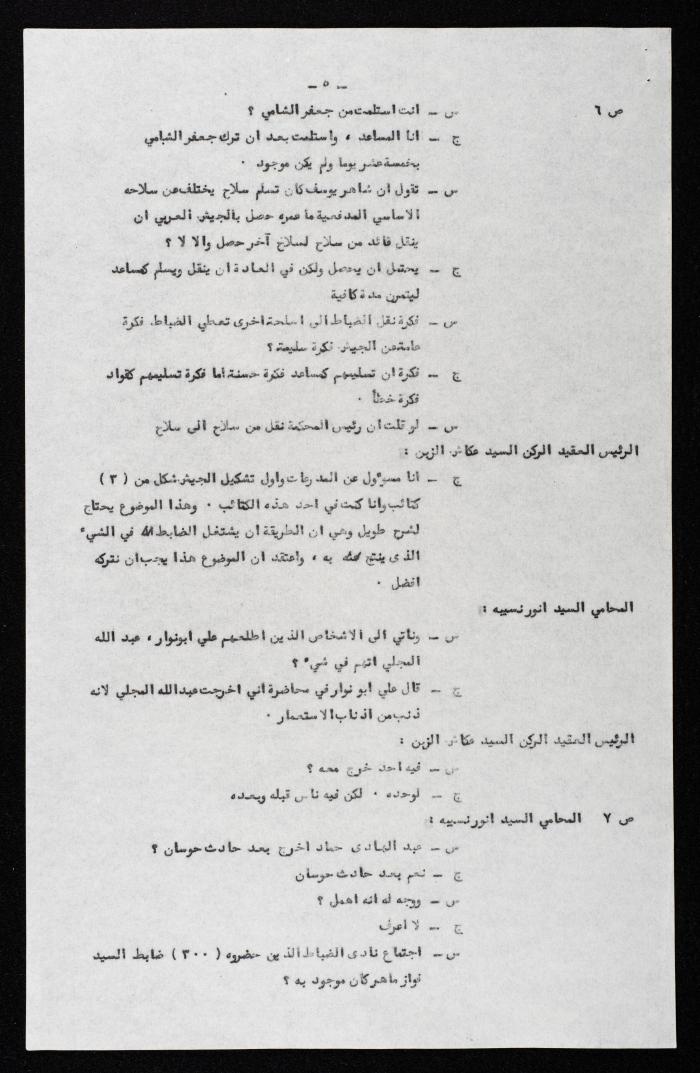 - ٥ -
ص ٦ س - انت استلمت من جعفر الشامي ؟
ج - انا المساعد ، واستلمت بعد ان ترك جعفر الشامي
بخمسة عشر يوما ولم يكن موجود .
س - تقول ان شاهر يوسف كان تسلم سلاح يختلف عن سلاحه
الاساسي المدفعية ما عمره حصل بالجيش العربي ان
ينقل قائد من سلاح لسلاح آخر حصل والا لا ؟
ج - يحتمل ان يحصل ولكن في العادة ان ينقل ويسلم كمساعد
ليتمرن مدة كافية
س - فكرة نقل الضباط الى اسلحة اخرى تعطي الضباط فكرة
عامة عن الجيش فكرة سليمة ؟
ج - فكرة ان تسليمهم كمساعد فكرة حسنة اما فكرة تسليمهم كقواد
فكرة خطأ .
س - لو قلت ان رئيس المحكمة نقل من سلاح الى سلاح
الرئيس العقيد الركن السيد عكاش الزبن :
ج - انا مسؤول عن المدرعات واول تشكيل الجيش شكل من ( ٣ )
كتائب وانا كنت في احد هذه الكتائب . وهذا الموضوع يحتاج
لشرح طويل وهي ان الطريقة ان يشتغل الضابط في الشيء
الذى ينتج به ، واعتقد ان الموضوع هذا يجب ان نتركه
افضل .
المحامي السيد انور نسيبه :
س - وناتي الى الاشخاص الذين اطلعهم علي ابو نوار ، عبد الله
المجلي اتهم في شيء ؟
ج - قال علي ابو نوار في محاضرة اني اخرجت عبد الله المجلي لانه
ذنب من اذناب الاستعمار .
الرئيس العقيد الركن السيد عكاش الزبن :
س - فيه احد خرج معه ؟
ج - لوحده . لكن فيه ناس قبله وبعده
ص ٧ المحامي السيد انور نسيبه :
س - عبد الهادى حماد اخرج بعد حادث حوسان ؟
ج - نعم بعد حادث حوسان
س - ووجه له انه اهمل ؟
ج - لا اعرف
س - اجتماع نادى الضباط الذين حضروه ( ٣٠٠ ) ضابط السيد
نواز ماهر كان موجود به ؟